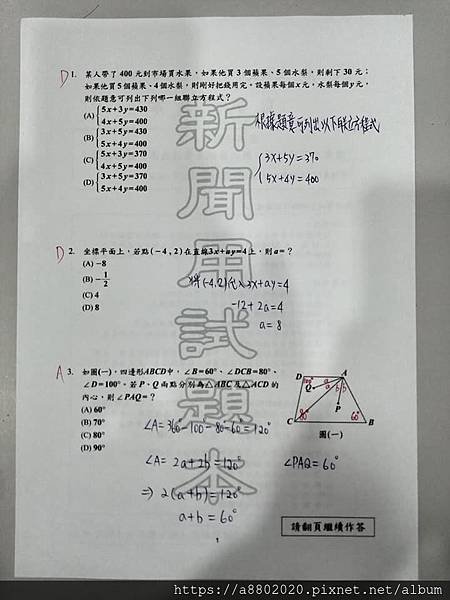 D 1. 某人帶了 400 元到市場買水果,如果他買 3 個蘋果、5 個水梨,則剩下 30 元;
如果他買 5 個蘋果、4 個水梨,則剛好把錢用完。設蘋果每個 x 元,水梨每個 y 元,
則依題意可列出下列哪一組聯立方程式?
(A) { 5x+3y=430
4x+5y=400
(B) { 3x+5y=430
5x+4y=400
(C) { 5x+3y=370
4x+5y=400
(D) { 3x+5y=370
5x+4y=400
根據題意可列出以下聯立方程式
{ 3x+5y=370
5x+4y=400
新聞用試題本
D 2. 坐標平面上,若點(-4, 2)在直線3x+ay=4上,則a=?
(A) -8
(B) -1/2
(C) 4
(D) 8
將(-4,2)代入3x+ay=4
-12+2a=4
a=8
A 3. 如圖(一),四邊形ABCD中,∠B=60°、∠DCB=80°、
∠D=100°。若P、Q兩點分別為△ABC及△ACD的
內心,則∠PAQ=?
(A) 60°
(B) 70°
(C) 80°
(D) 90°
∠A=360°-100-80-60=120°
∠A=2a+2b=120°
⇒ 2(a+b)=120°
a+b=60°
∠PAQ=60°
D 100° A
Q a a b b
P
C 80° 60° B
圖(一)
請翻頁繼續作答
1
https://a8802020.pixnet.net/album